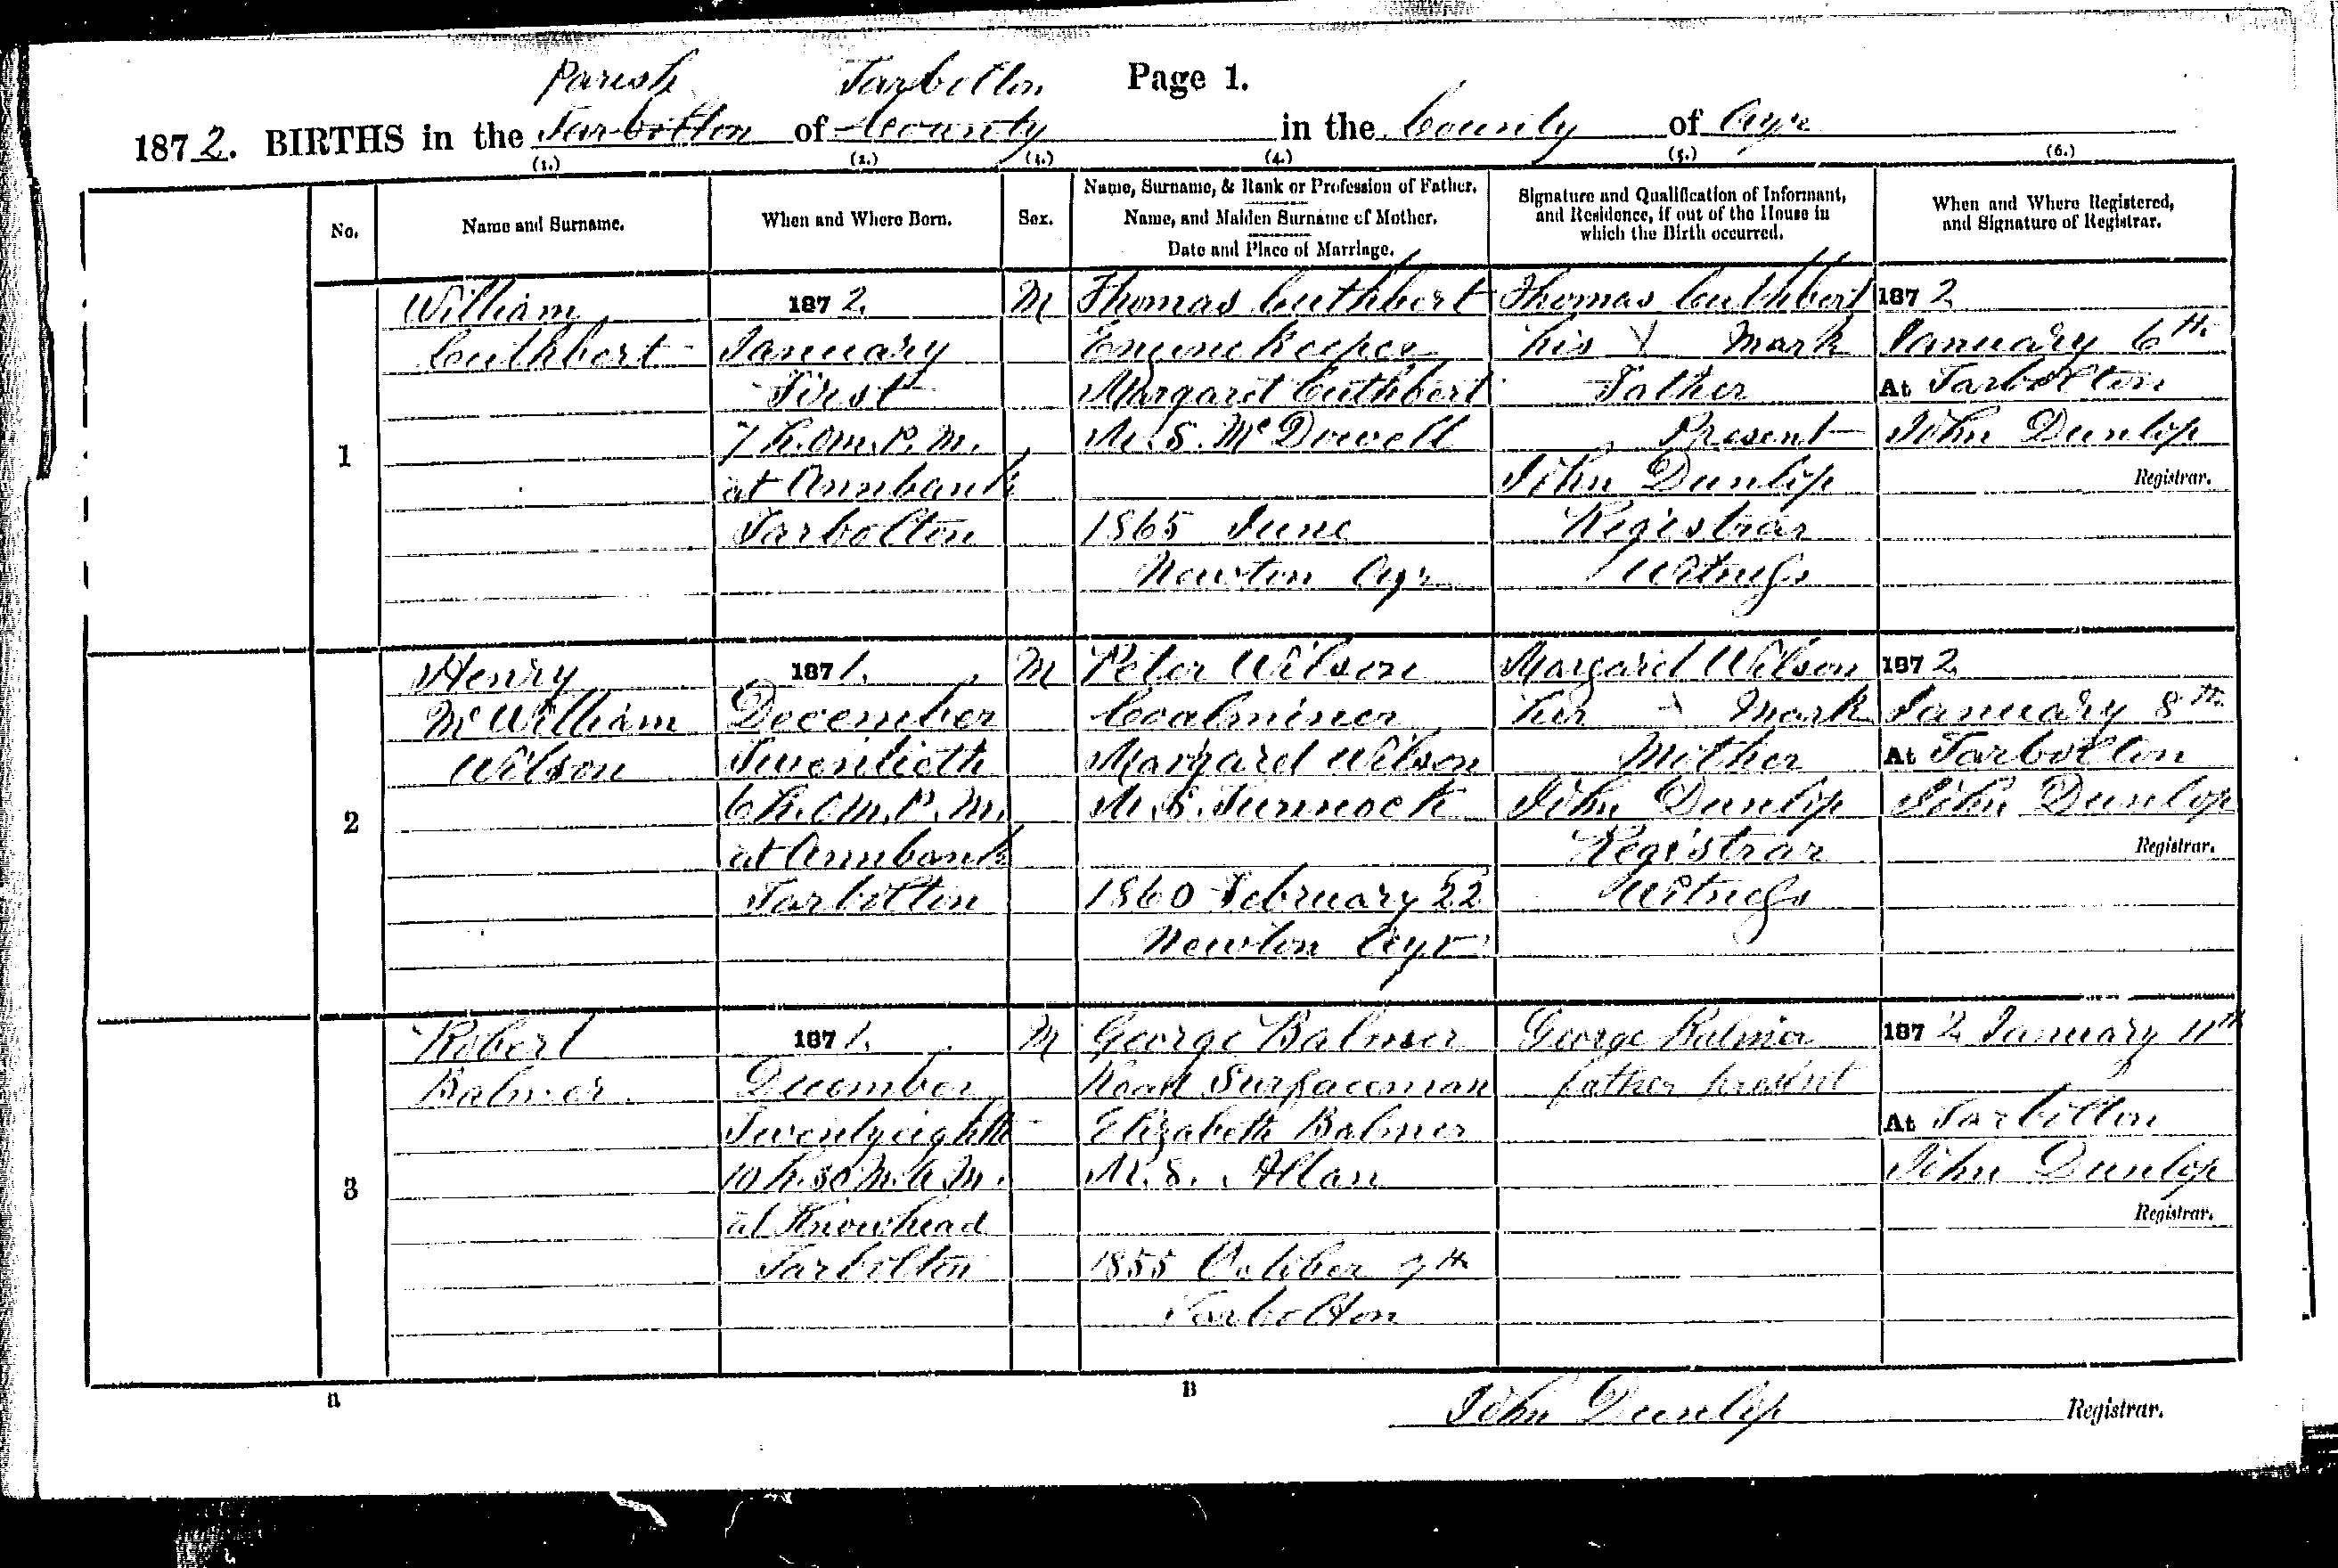 Page 1.
Parish Tarbolton
1872. BIRTHS in the Tarbolton of County in the County of Ayr
(1.) (2.) (3.) (4.) (5.) (6.)
No.
Name and Surname.
When and Where Born.
Sex.
Name, Surname, & Rank or Profession of Father.
Name, and Maiden Surname of Mother.
Date and Place of Marriage.
Signature and Qualification of Informant,
and Residence, if out of the House in
which the Birth occurred.
When and Where Registered,
and Signature of Registrar.
1
William
Cuthbert
1872
January
First
7 h. 0m. P. M.
at Annbank
Tarbolton
M
Thomas Cuthbert
Engine Keeper
Margaret Cuthbert
M. S. McDowell
1865 June
Newton Ayr
Thomas Cuthbert
his X Mark
Father
Present
John Dunlop
Registrar
Witness
1872
January 6th
At Tarbolton
John Dunlop
Registrar.
2
Henry
McWilliam
Wilson
1871.
December
Twentieth
6 h. 0m. P. M.
at Annbank
Tarbolton
M
Peter Wilson
Coalminer
Margaret Wilson
M. S. Tunnock
1860 February 22
Newton Ayr
Margaret Wilson
her X Mark
Mother
John Dunlop
Registrar
Witness
1872
January 8th
At Tarbolton
John Dunlop
Registrar.
3
Robert
Balmer
1871.
December
Twentyeighth
10 h. 30 M. A. M.
at Knowhead
Tarbolton
M
George Balmer
Road Surfaceman
Elizabeth Balmer
M. S. Allan
1855 October 9th
Tarbolton
George Balmer
father present
1872 January 11th
At Tarbolton
John Dunlop
Registrar.
B
John Dunlop Registrar.